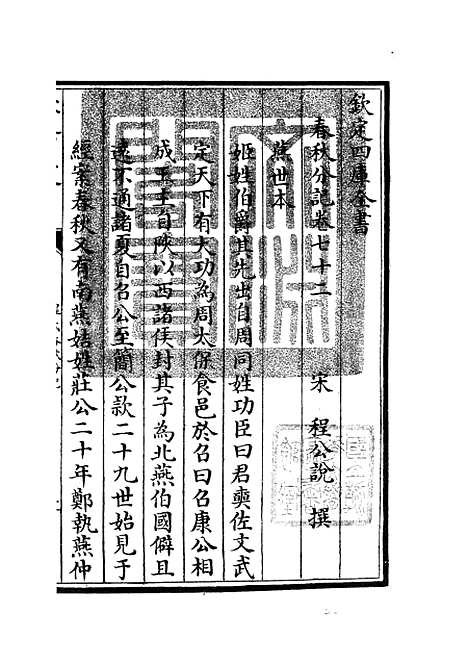 欽定四庫全書
春秋分記卷七十二
宋 程公說 撰
燕世本
姬姓伯爵其先出自周同姓功臣曰君奭佐文武
定天下有大功為周太保食邑於召曰召康公相
成王主自陜以西諸侯封其子為北燕伯國僻且
遠不通諸夏自召公至簡公款二十九世始見于
經案春秋又有南燕姞姓莊公二十年鄭執燕仲